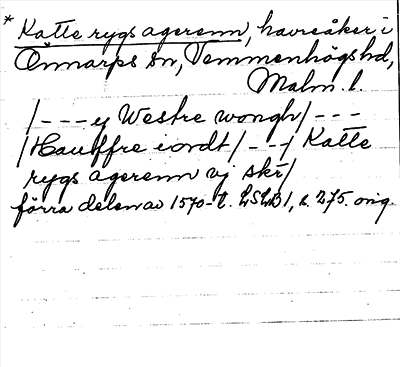 * Katte rygs agerenn, havreåker i
Önnarps sn, Vemmenhögs hd,
Malm. l.
/---y Westre wongh/---
/Hauffre iordt/---/ Katte
rygs agerenn vj skr/
förra delen av 1570-t. LSLB 1, s. 275. orig.